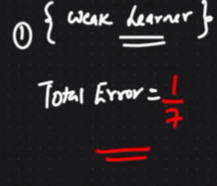 ① { weak Learner }
Total Error = 1/7